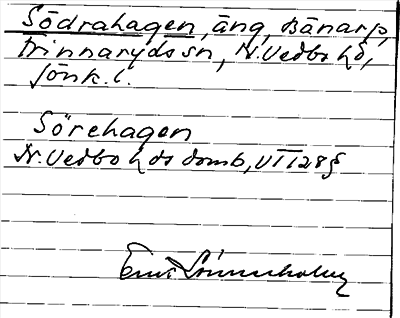 Södrahagen, äng, Bänarp,
Linnaryds sn, N. Vedbo hd,
Jönk. l.
Sörehagen
N. Vedbo hds domb, VII 28 §